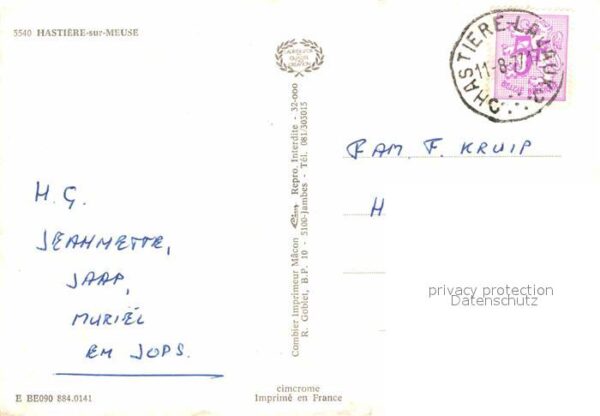 5540 HASTIÈRE-sur-MEUSE
HASTIERE-LAVAUX
11-8-77
5F
Combier Imprimeur Mâcon Cim Repro. Interdite - 32-000
R. Goblet, B.P. 10 - 5100-Jambes - Tél. 081/305015
FAM. F. KRUIP
H
H. G.
JEANNETTE,
JAAP,
MURIËL
EN JOPS.
privacy protection
Datenschutz
E BE090 884.0141
cimcrome
Imprimé en France